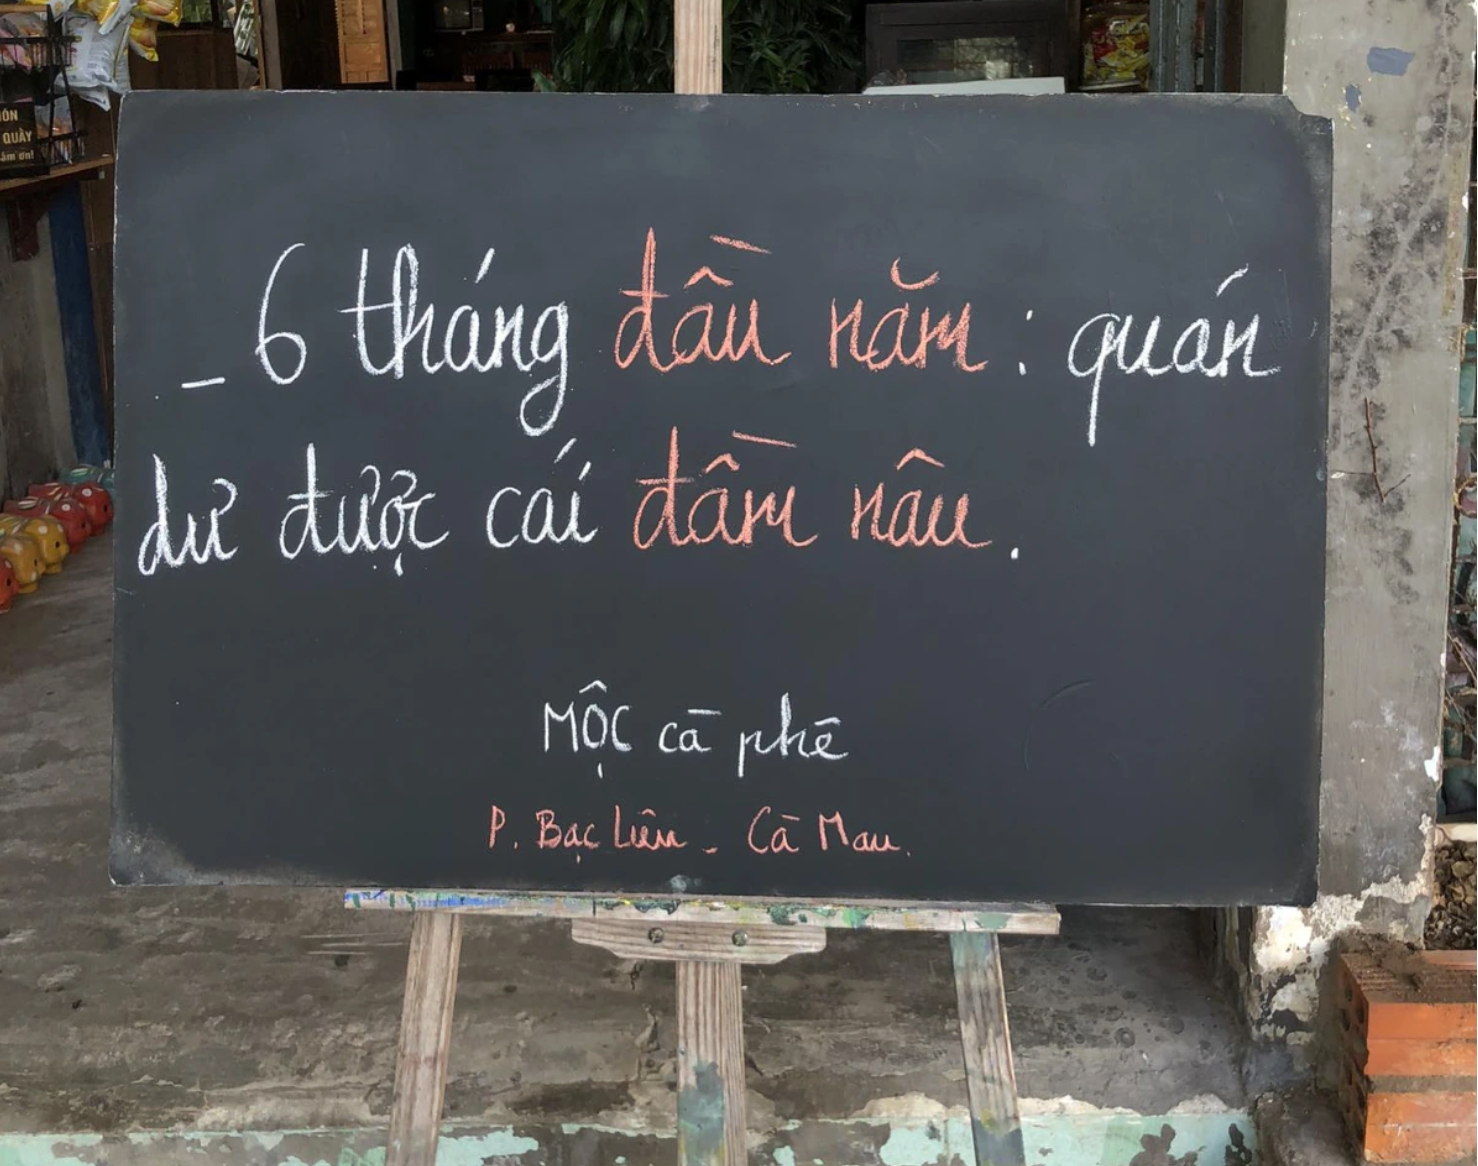 ÓN
QUẦY
ảm ơn!
_ 6 tháng đầu năm : quán
dư được cái đầm nâu .
MỘC cà phê
P. Bạc Liêu - Cà Mau.